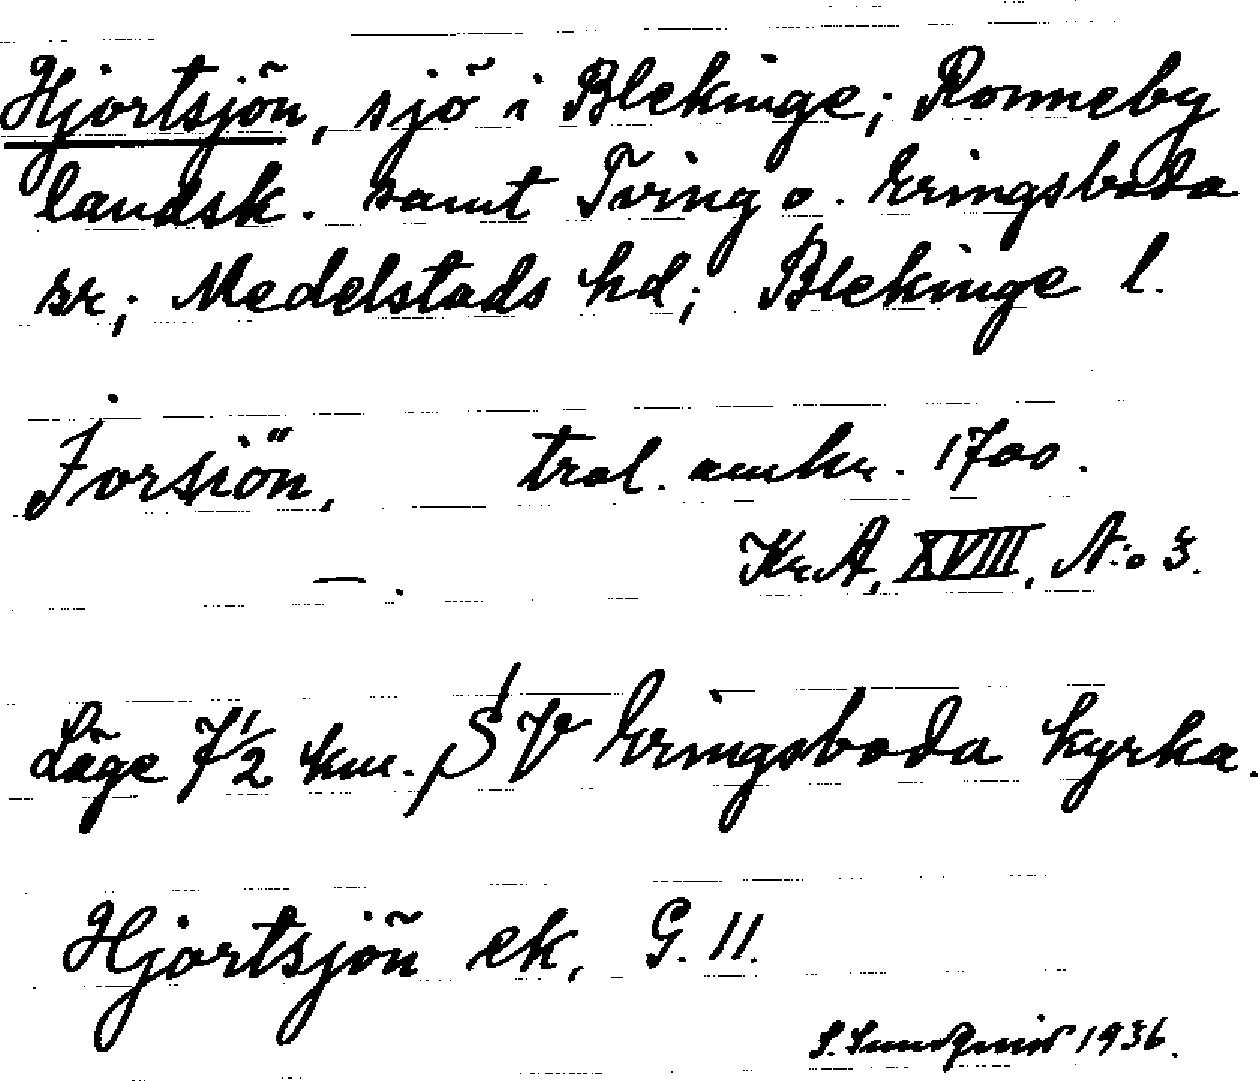 Hjortsjön, sjö i Blekinge; Ronneby
landsk. samt Tving o. Eringsboda
sr; Medelstads hd; Blekinge l.
Jorsiön, tral. omkr. 1700.
—. KrA, XVIII, N:o 3.
Läge 7½ km. SV Eringsboda kyrka.
Hjortsjön ek, G. 11.
S. Sundqvist 1936.